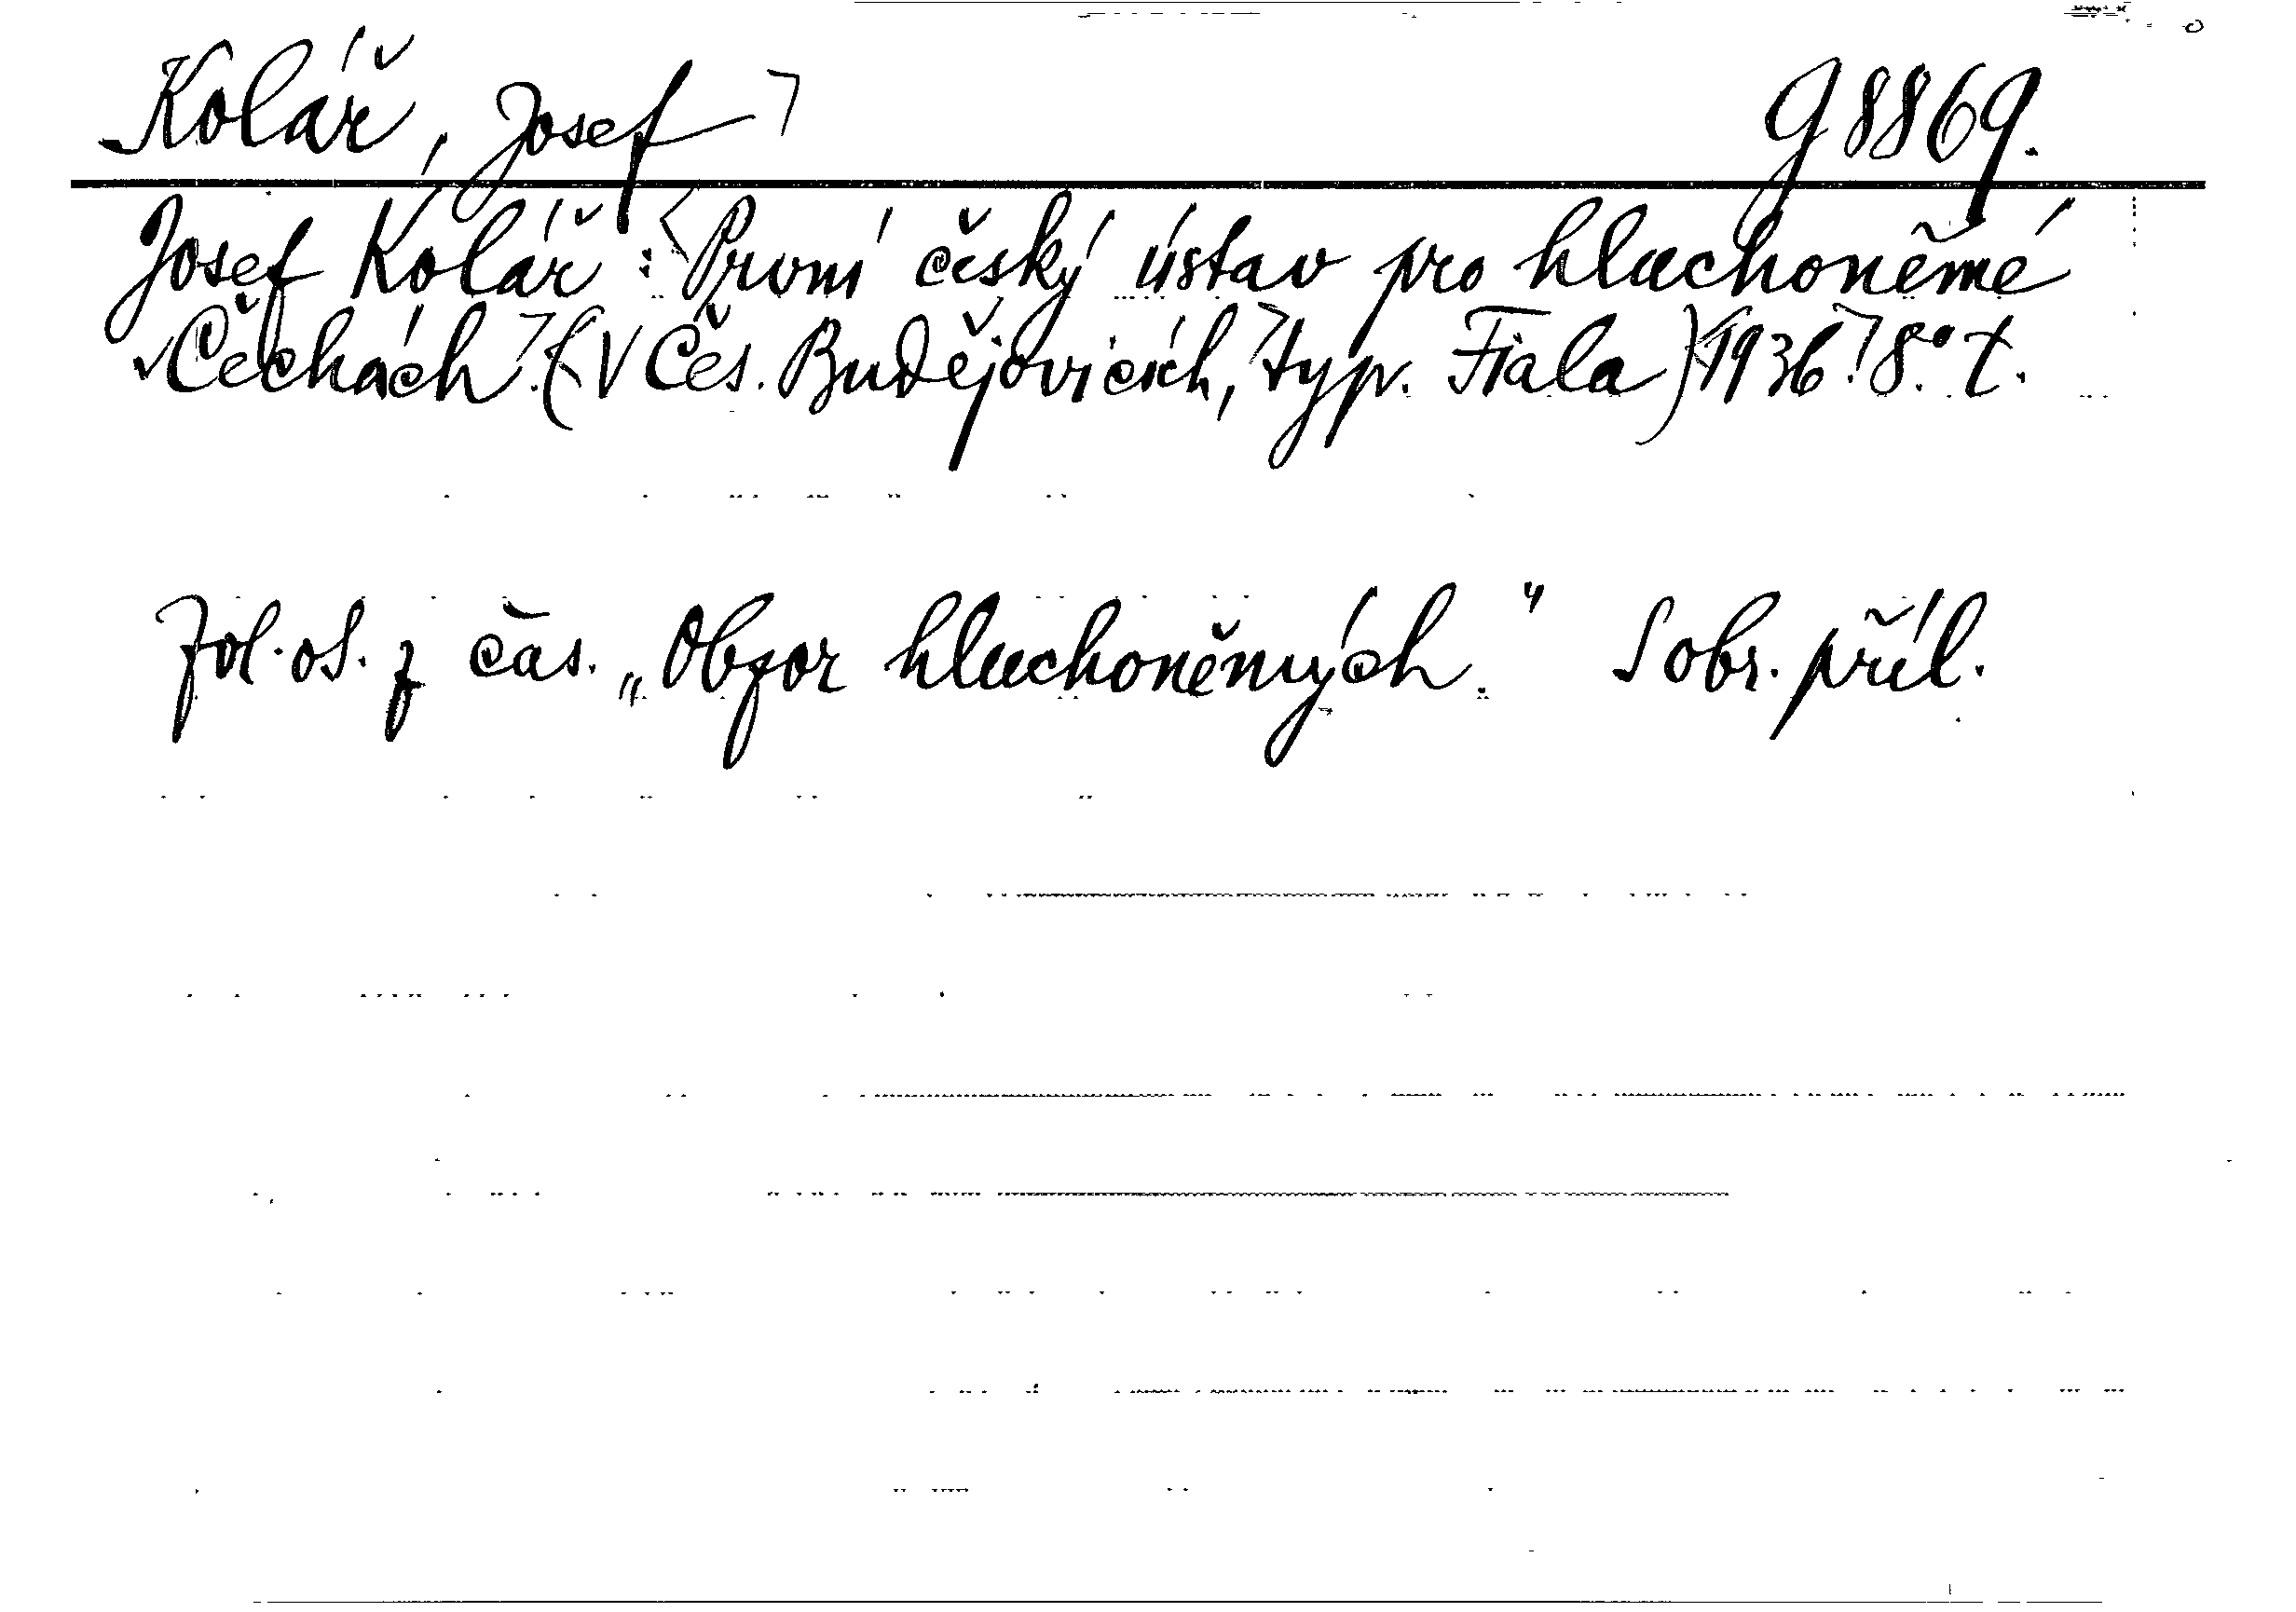 Kolář, Josef g 8869.
Josef Kolář: První český ústav pro hluchoněmé
v Čechách. (V Čes. Budějovicích, typ. Fiala) 1936. 8.° t.
Zvl. ot. z čas. „Obzor hluchoněmých." S obr. příl.